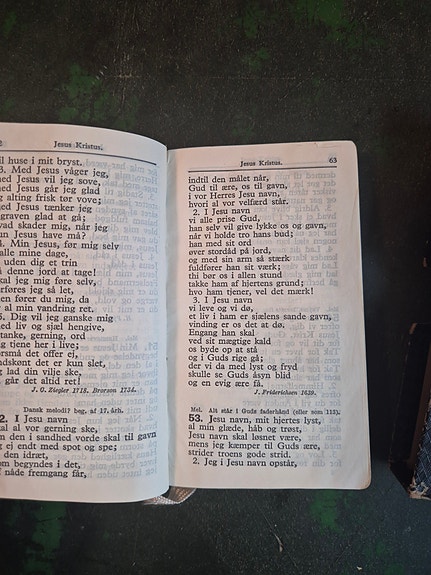 2
Jesus Kristus.
ll huse i mit bryst.
3. Med Jesus våger jeg,
ed Jesus vil jeg sove,
ed Jesus går jeg glad
g alting frisk tør vove;
ed Jesus tænker jeg
graven glad at gå;
vad skader mig, når jeg
un Jesus have må?
4. Min Jesus, før mig selv
alle mine dage,
uden dig er trin
å denne jord at tage!
kal jeg mig føre selv,
orføres jeg så let,
en fører du mig, da
r al min vandring ret.
5. Dig vil jeg ganske mig
ed liv og sjæl hengive,
tanke, gerning, ord
ig tjene her i live;
orsmå det offer ej,
ndskønt det er kun slet,
g lad din vilje ske,
går det altid ret!
J. G. Ziegler 1718. Brorson 1734.
Dansk melodi? beg. af 17. årh.
2. I Jesu navn
kal al vor gerning ske,
en i sandhed vorde skal til gavn
g ej endt med spot og spe;
en idræt,
om begyndes i det,
åde fremgang får,
Jesus Kristus.
63
indtil den målet når,
Gud til ære, os til gavn,
i vor Herres Jesu navn,
hvori al vor velfærd står.
2. I Jesu navn
vi alle prise Gud,
han selv vil give lykke os og gavn,
når vi holde tro hans bud;
han med sit ord
øver stordåd på jord,
og med sin arm så stærk
fuldfører han sit værk;
thi bør os i allen stund
takke ham af hjertens grund;
hvo ham tjener, vel det mærk!
3. I Jesu navn
vi leve og vi dø,
et liv i ham er sjælens sande gavn,
vinding er os det at dø.
Engang han skal
ved sit mægtige kald
os byde op at stå
og i Guds rige gå;
der vi da med lyst og fryd
skulle se Guds åsyn blid
og en evig ære få.
J. Friderichsen 1639.
Mel. Alt står i Guds faderhånd (eller som 113).
53. Jesu navn, mit hjertes lyst,
al min glæde, håb og trøst,
Jesu navn skal løsnet være,
mens jeg kæmper til Guds ære,
strider troens gode strid.
2. Jeg i Jesu navn opstår,